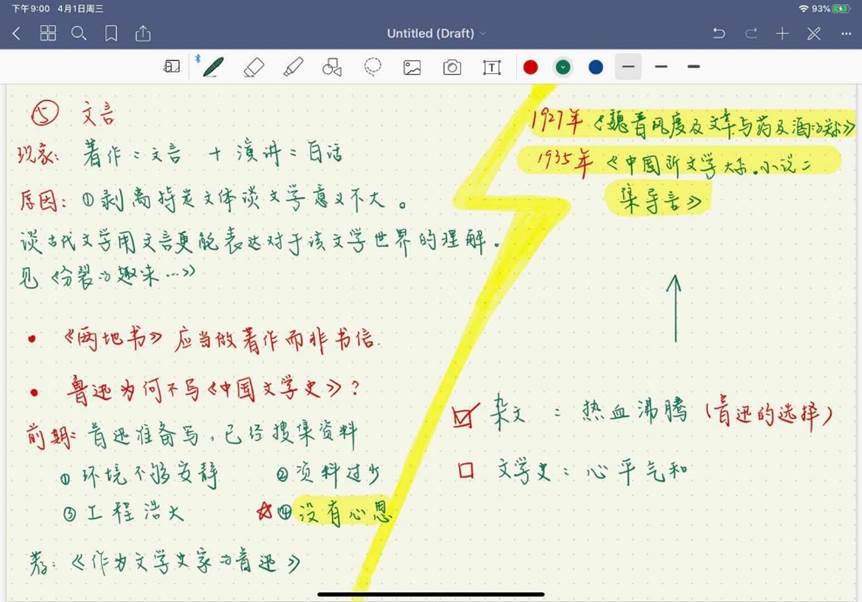 下午9:00 4月1日周三
93%
Untitled (Draft)
⑤ 文言
现象：著作＝文言 ＋演讲＝白话
原因：①剥离特定文体谈文学意义不大。
谈古代文学用文言更能表达对于该文学世界的理解。
见《分裂的趣味…》
• 《两地书》应当做著作而非书信.
• 鲁迅为何不写《中国文学史》？
前期：鲁迅准备写，已经搜集资料
①环境不够安静 ②资料过少
③工程浩大 ☆④没有心思
荐：《作为文学史家的鲁迅》
1927年《魏晋风度及文章与药及酒之关系》
1935年《中国新文学大系.小说二
集导言》
↑
☑ 杂文：热血沸腾（鲁迅的选择）
□ 文学史：心平气和